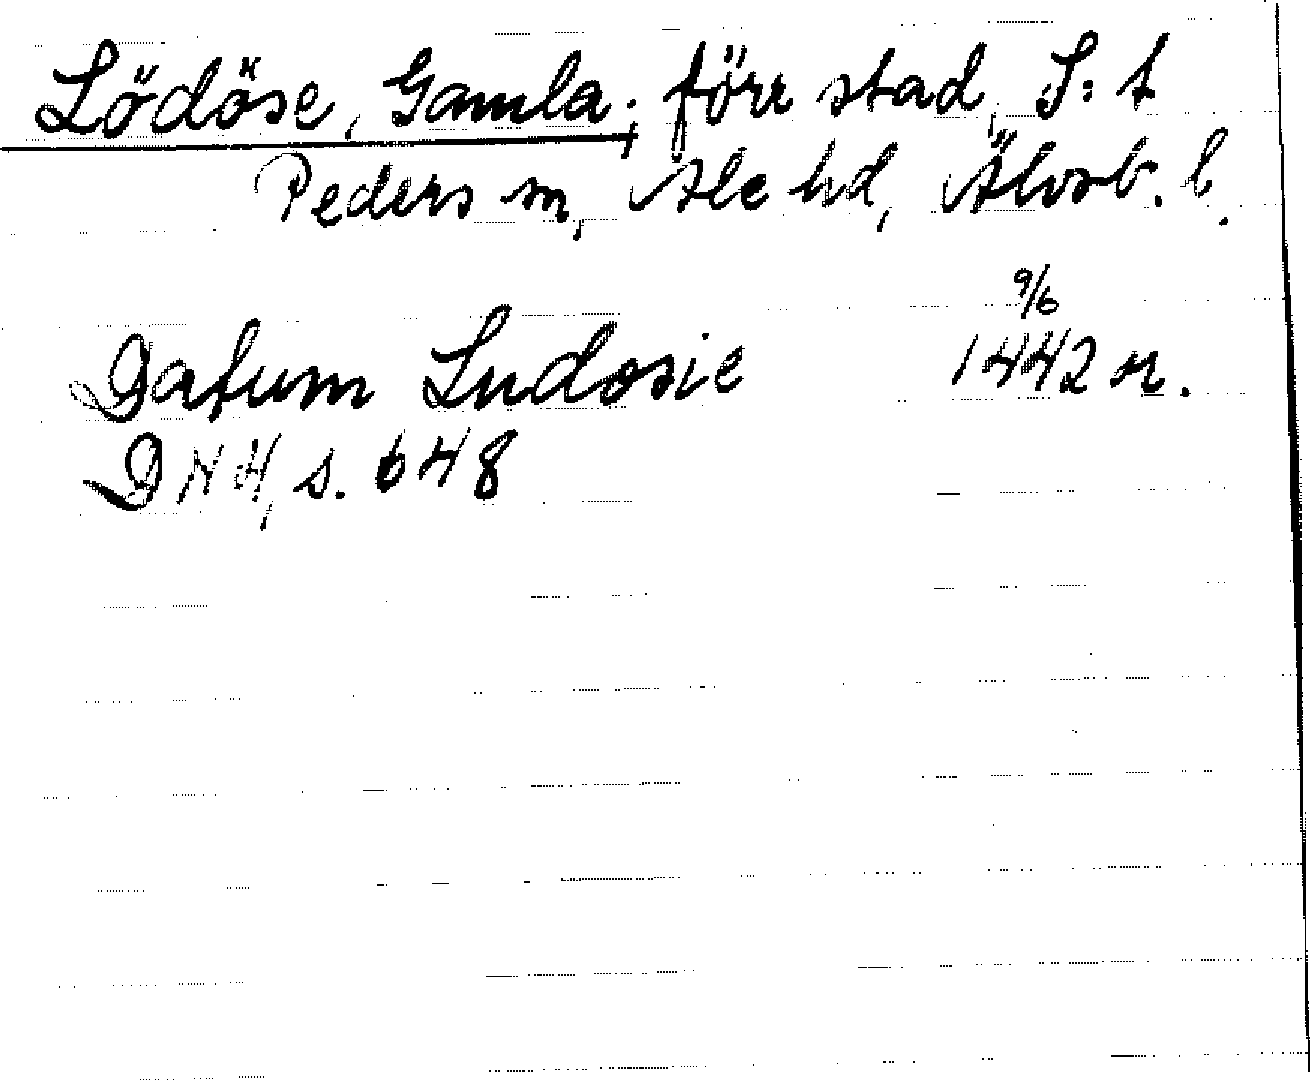 Lödöse, Gamla; förr stad, S:t
Peders sn, Ale hd, Älvsb. l.
9/6
Datum Ludosie 1442 or.
DN 4, s. 648